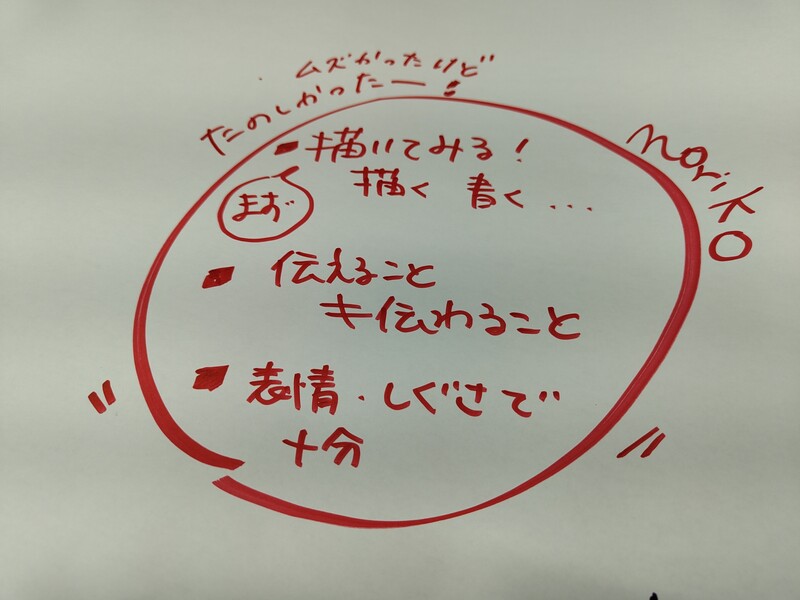 ムズかったけど
たのしかったー!
noriko
■描いてみる!
まず
描く 書く...
■伝えること
≠伝わること
■表情・しぐさで
十分